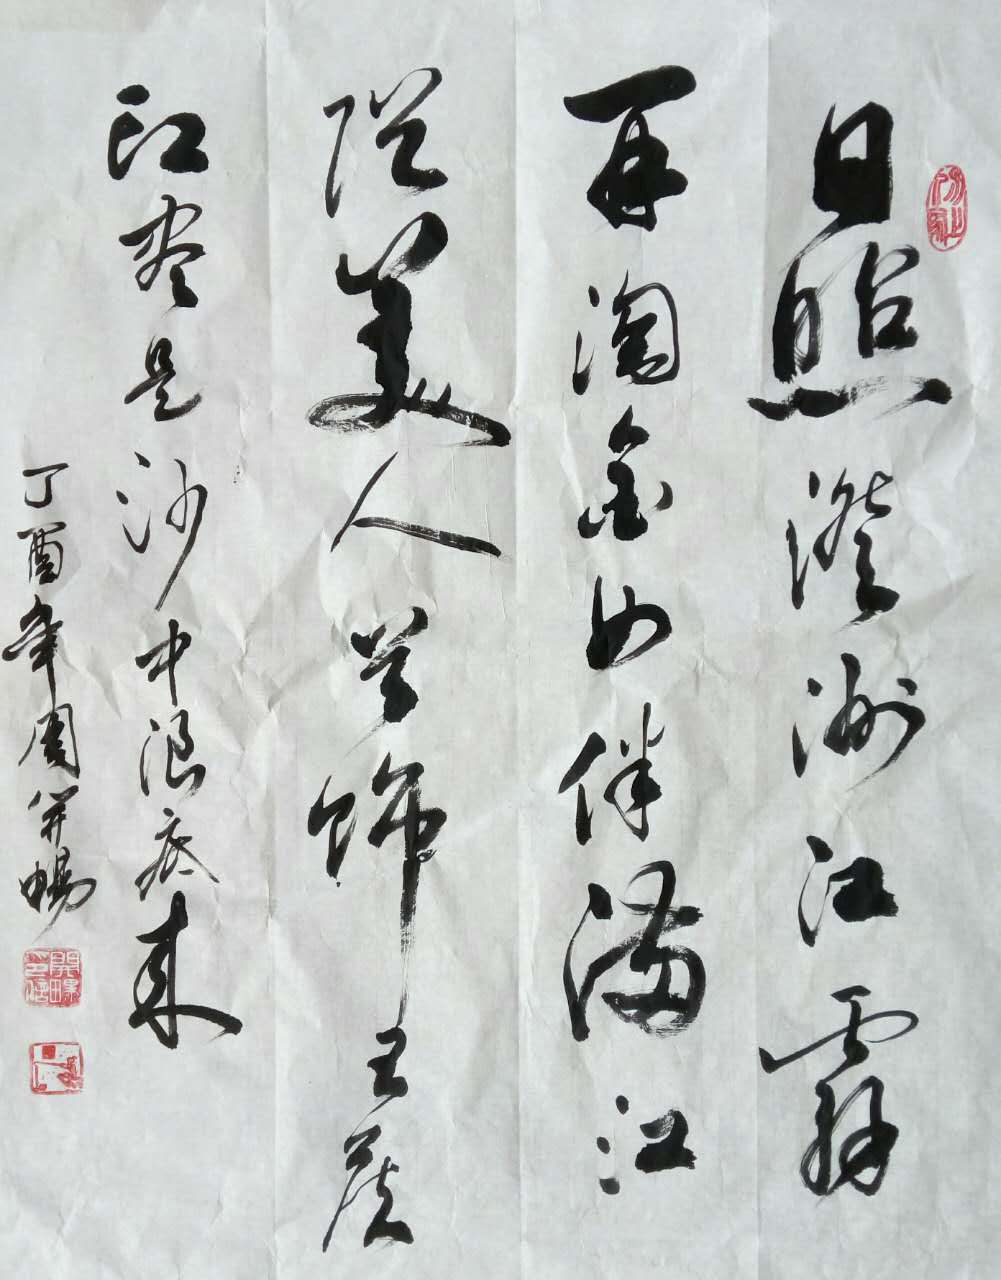 日照澄洲江雾
再淘金女伴满江
隈美人首饰王侯
印尽是沙中浪底来
丁酉年周开畅